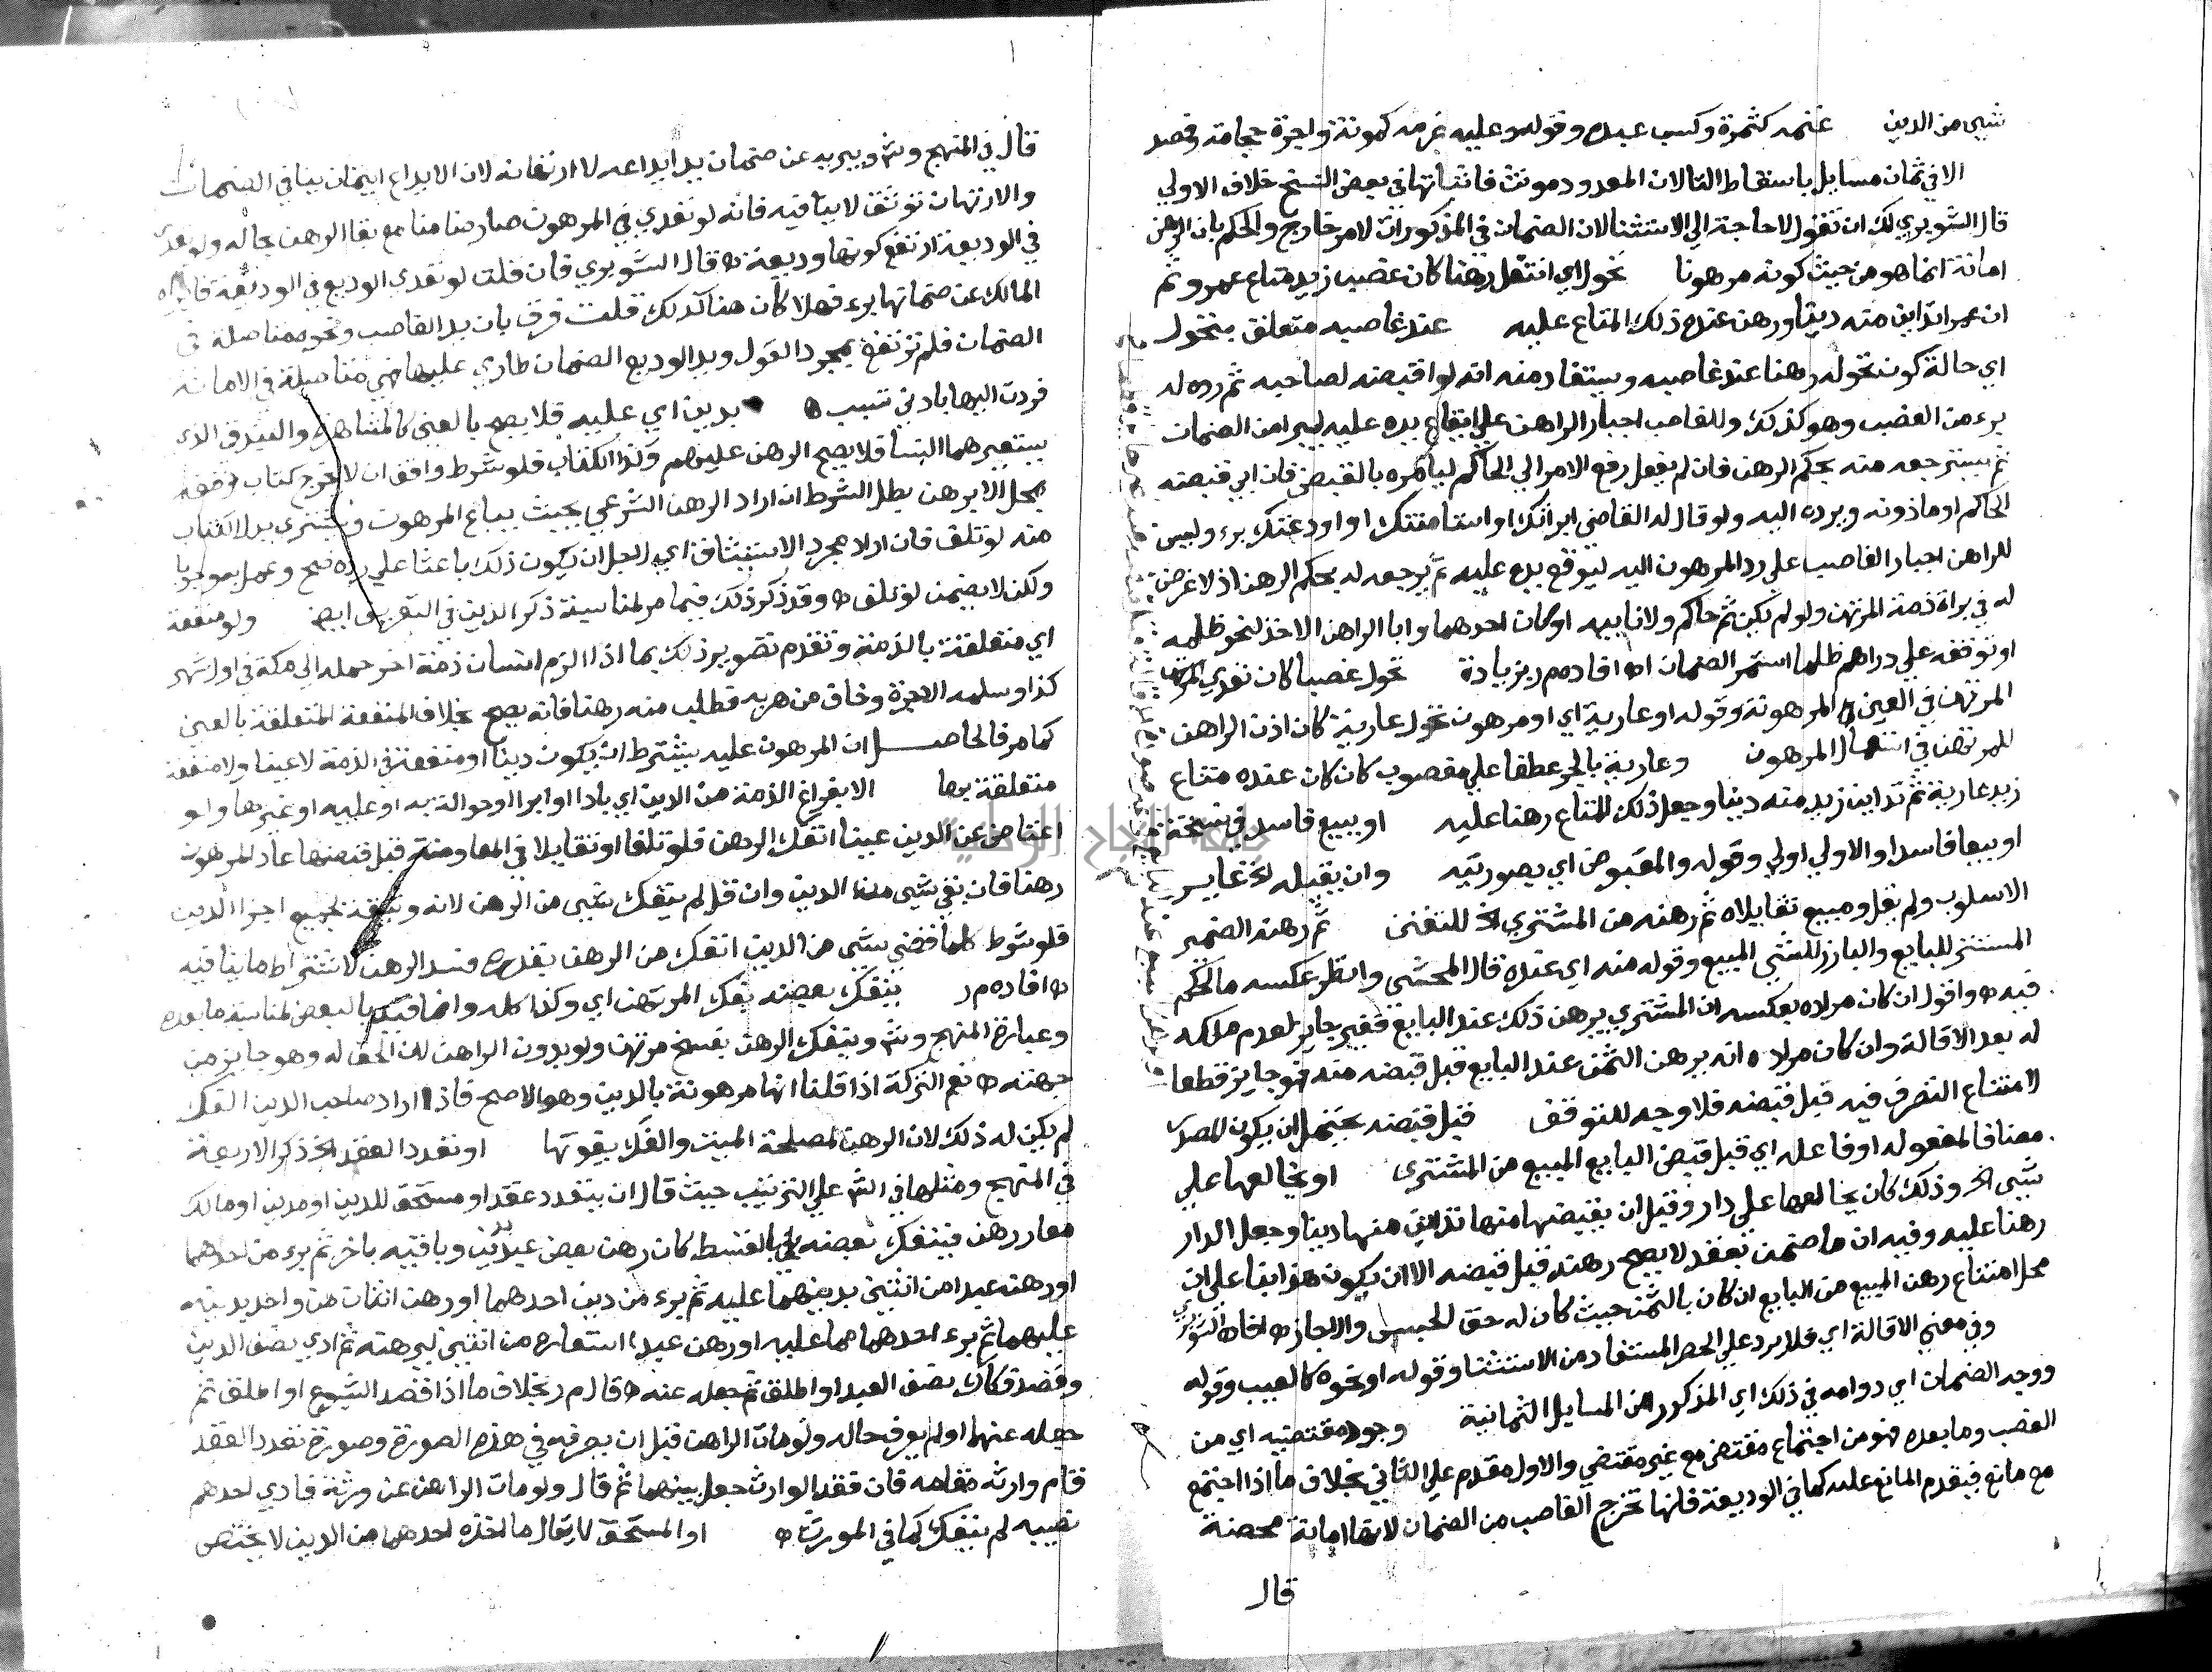 شيء من الدين غنمه كثمرة وكسب عبده وقوله وعليه غرمه كمونة واجرة حجامة وفصد
الا في ثمان مسايل باسقاط التا لان المعدود مونث فاثباتها في بعض النسخ خلاف الاولي
قال الشوبري لك ان تقول لا حاجة الي الاستثنا لان الضمان في المذكورات لامر خارج والحكم بان الرهن
امانة انما هو من حيث كونه مرهونا تحول اي انتقل رهنا كان غصب زيد متاع عمرو ثم
ان عمرا تداين منه دينا ورهن عنده ذلك المتاع عليه عند غاصبه متعلق بتحول
اي حالة كون تحوله رهنا عند غاصبه ويستفاد منه انه لو اقبضه لصاحبه ثم رده له
برء من الغصب وهو كذلك وللغاصب اجبار الراهن علي ايقاع يده عليه ليبرا من الضمان
ثم يسترجعه منه بحكم الرهن فان لم يفعل رفع الامر الي الحاكم ليامره بالقبض فان ابي قبضه
الحاكم او ماذونه ويرده اليه ولو قال له القاضي ابراتك او استامنتك او اودعتك برء وليس
للراهن اجبار الغاصب علي رد المرهون اليه ليوقع يده عليه ثم يرجعه له بحكم الرهن اذ لا غرض
له في براة ذمة المرتهن ولو لم يكن ثم حاكم ولا نايبه او كان احدهما وابا الراهن الاخذ لنحو ظلمه
او توقفه علي دراهم ظلما استمر الضمان اه افاده م ر بزيادة تحول غصبا كان تعدي
المرتهن في العين المرهونة وقوله او عارية اي او مرهون تحول عارية كان اذن الراهن
للمرتهن في المرهون وعارية بالجر عطفا علي مغصوب كان كان عنده متاع
زيد عارية ثم تداين زيد منه دينا وجعل ذلك المتاع رهنا عليه او ببيع فاسد في نسخة
او بيعا فاسدا والاولي اولي وقوله والمقبوض اي بصورتيه وان يقيله الخ غاير
الاسلوب ولم يقل ومبيع تقايلاه ثم رهنه من المشتري الخ للتفنن ثم رهنه الضمير
المستتر للبايع والبارز للشي المبيع وقوله منه اي عنده قال المحشي وانظر عكسه ما الحكم
فيه اه واقول ان كان مراده بعكسه ان المشتري يرهن ذلك عند البايع فغير جايز لعدم ملكه
له بعد الاقالة وان كان مراده انه يرهن الثمن عند البايع قبل قبضه منه فهو جايز قطعا
لامتناع التصرف فيه قبل قبضه فلا وجه للتوقف قبل قبضه يحتمل ان يكون المصدر
مضافا لمفعوله او فاعله اي قبل قبض البايع المبيع من المشتري او يخالعها علي
شي الخ وذلك كان يخالعها علي دار وقبل ان يقبضها منها تداين منها دينا وجعل الدار
رهنا عليه وفيه ان ما ضمن بعقد لا يصح رهنه قبل قبضه الا ان يكون هذا بنا علي ان
محل امتناع رهن المبيع من البايع ان كان بالثمن حيث كان له حق الحبس والا جاز اه افاده الشوبري
وفي معني الاقالة اي فلا يرد علي الحصر المستفاد من الاستثنا وقوله او نحوه كالعيب وقوله
ووجه الضمان اي دوامه في ذلك اي المذكور من المسايل الثمانية وجود مقتضيه اي من
الغصب وما بعده فهو من اجتماع مقتض مع غير مقتضي والاول مقدم علي الثاني بخلاف ما اذا اجتمع
مع مانع فيقدم المانع عليه كما في الوديعة فانها تخرج الغاصب من الضمان لانها امانة محضة
قال
قال في المنهج وش ويبريه عن ضمان يد ايداعه لا ارتهانه لان الايداع ايتمان ينافي الضمان
والارتهان توثق لا ينافيه فانه لو تعدي في المرهون صار ضامنا مع بقا الرهن بحاله ولو تعدي
في الوديعة ارتفع كونها وديعة اه قال الشوبري فان قلت لو تعدي الوديع في الوديعة
المالك عن ضمانها برء فهلا كان هنا كذلك قلت فرق بان يد الغاصب ونحوه متاصلة في
الضمان فلم ترتفع بمجرد القول ويد الوديع الضمان طاري عليها فهي متاصلة في الامانة
فردت اليها بادني سبب اه بدين اي عليه فلا يصح بالعين كالمشاهرة والبندق الذي
يستعيرهما النسا فلا يصح الرهن عليهم وكذا الكتاب فلو شرط واقف ان لا يخرج كتاب وقفه
بمحل الا برهن بطل الشرط ان اراد الرهن الشرعي بحيث يباع المرهون ويشتري بدل الكتاب
منه لو تلف فان اراد مجرد الاستيثاق اي لاجل ان يكون ذلك باعثا علي رده صح وعمل بموجبه
ولكن لا يضمن لو تلف اه وقد ذكر ذلك فيما مر لمناسبة ذكر الدين في التعريف ايض ولو منفعة
اي متعلقة بالذمة وتقدم تصوير ذلك بما اذا الزم انسان ذمة اخر حمله الي مكة في اول شهر
كذا وسلمه الاجرة وخاف من هربه فطلب منه رهنا فانه يصح بخلاف المنفعة المتعلقة بالعين
كما مر فالحاصل ان المرهون عليه يشترط ان يكون دينا او منفعة في الذمة لا عينا ولا منفعة
متعلقة بها الا بفراغ الذمة من الدين اي بادا او ابرا او حوالة به او عليه او غيرها ولو
اعتاض عن الدين عينا انفك الرهن فلو تلفا او تقايلا في المعاوضة قبل قبضها عاد المرهون
رهنا فان بقي شي من الدين وان قل لم ينفك شي من الرهن لانه وثيقة لجميع اجزا الدين
فلو شرط كلما قضي شي من الدين انفك من الرهن بقدره فسد الرهن لاشتراط ما ينافيه
اه افاده م ر ينفك بعضه بفك المرتهن اي وكذا كله واضافته بالبعض لمناسبة ما بعده
وعبارة المنهج وش وينفك الرهن بفسخ مرتهن ولو بدون الراهن لان الحق له وهو جايز من
جهته اه نعم التركة اذا قلنا انها مرهونة بالدين وهو الاصح فاذا اراد صاحب الدين الفك
لم يكن له ذلك لان الرهن لمصلحة الميت والفك يفوتها او تعدد العقد الخ ذكر الاربعة
في المنهج ومثلها في الش علي الترتيب حيث قال ان يتعدد عقد او مستحق للدين او مدين او مالك
معار رهن فينفك بعضه اي بالقسط كان رهن بعض عبد بدين وباقيه باخر ثم برء من احدهما
او رهنه عبدا من اثنين بدينهما عليه ثم برء من دين احدهما او رهن اثنان من واحد بدينه
عليهما ثم برء احدهما مما عليه او رهن عبدا استعاره من اثنين ليرهنه ثم ادي نصف الدين
وقصد فكاك نصف العبد او اطلق ثم جعله عنه اه قال م ر بخلاف ما اذا قصد الشيوع او اطلق ثم
جعله عنهما او لم يعرف حاله ولو مات الراهن قبل ان يعرفه في هذه الصورة وصورة تعدد العقد
قام وارثه مقامه فان فقد الوارث جعل بينهما ثم قال ولو مات الراهن عن ورثة فادي احدهم
نصيبه لم ينفك كما في المورث اه او المستحق لا يقال ما اخذه احدهما من الدين لا يختص